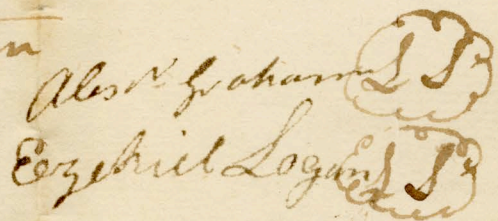 n
Alexr. Graham L S.
Eezekiel Logan L S.